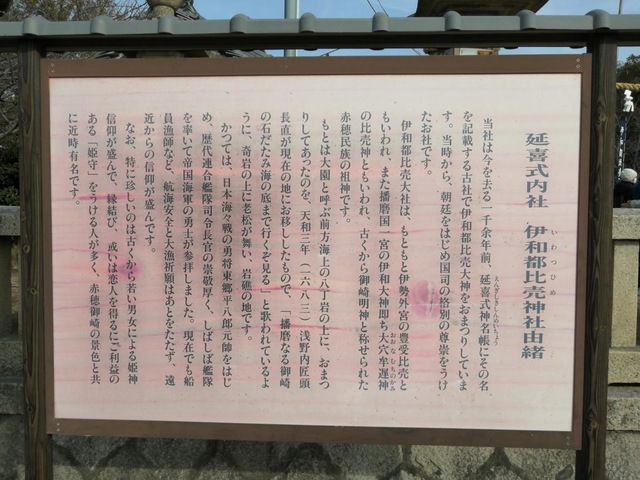 延喜式内社 伊和都比売神社由緒
いわつひめ
当社は今を去る一千余年前、延喜式神名帳にその名
えんぎしきしんめいちょう
を記載する古社で伊和都比売大神をおまつりしていま
す。当時から、朝廷をはじめ国司の格別の尊崇をうけ
たお社です。
伊和都比売大社は、もともと伊勢外宮の豊受比売と
もいわれ、また播磨国一宮の伊和大神即ち大穴牟遅神
おおなむちのかみ
の比売神ともいわれ、古くから御崎明神と称せられた
赤穂民族の祖神です。
もとは大園と呼ぶ前方海上の八丁岩の上に、おまつ
りしてあったのを、天和三年（一六八三）浅野内匠頭
長直が現在の地にお移ししたもので、「播磨なる御崎
の石だたみ海の底まで行くぞ見る」と歌われているよ
うに、奇岩の上に老松が舞い、岩礁の地です。
かつては、日本海々戦の勇将東郷平八郎元帥をはじ
め、歴代連合艦隊司令長官の崇敬厚く、しばしば艦隊
を率いて帝国海軍の勇士が参拝しました。現在でも船
員漁師など、航海安全と大漁祈願はあとをたたず、遠
近からの信仰が盛んです。
なお、特に珍しいのは古くから若い男女による姫神
信仰が盛んで、縁結び、或いは恋人を得るにご利益の
ある「姫守」をうける人が多く、赤穂御崎の景色と共
に近時有名です。